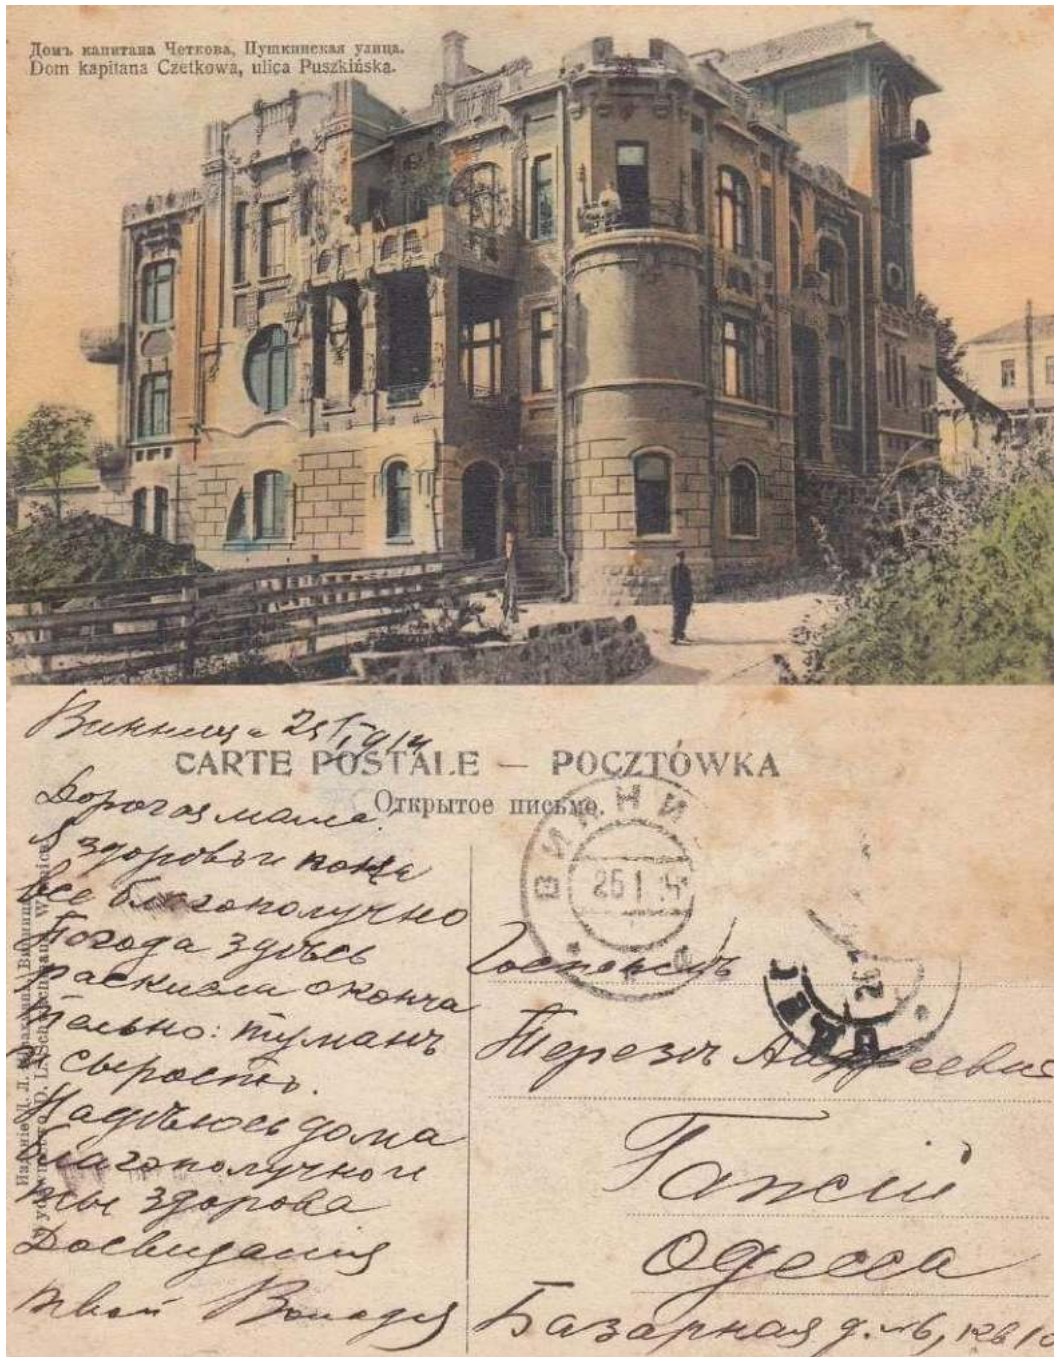 Домъ капитана Четкова, Пушкинская улица.
Dom kapitana Czetkowa, ulica Puszkińska.
Винница 25 I 1914
CARTE POSTALE — POCZTÓWKA
Открытое письмо.
Дорогая мама!
Я здоровъ и пока
все благополучно
Погода здѣсь
раскисла оконча
тельно: туманъ
и сырость.
Надѣюсь дома
благополучно и
ты здорова
Досвидания
твой Володя
ВИННИ
26 1
Госпожѣ
Терезѣ Андреевнѣ
Одесса
Базарная д. №6, кв 10
Изданіе Д. Л. Винница